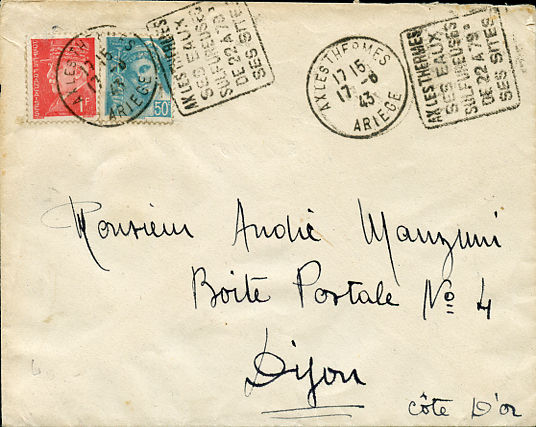 AX LES THERMES
SES EAUX
SULFUREUSES
DE 22 A 79°
SES SITES
AX LES THERMES
17 15
17 -8
43
ARIEGE
AX LES THERMES
SES EAUX
SULFUREUSES
DE 22 A 79°
SES SITES
AX LES THERMES
17 15
ARIEGE
F
50c
Monsieur André Manzini
Boite Postale No 4
Dijon
côte D'or